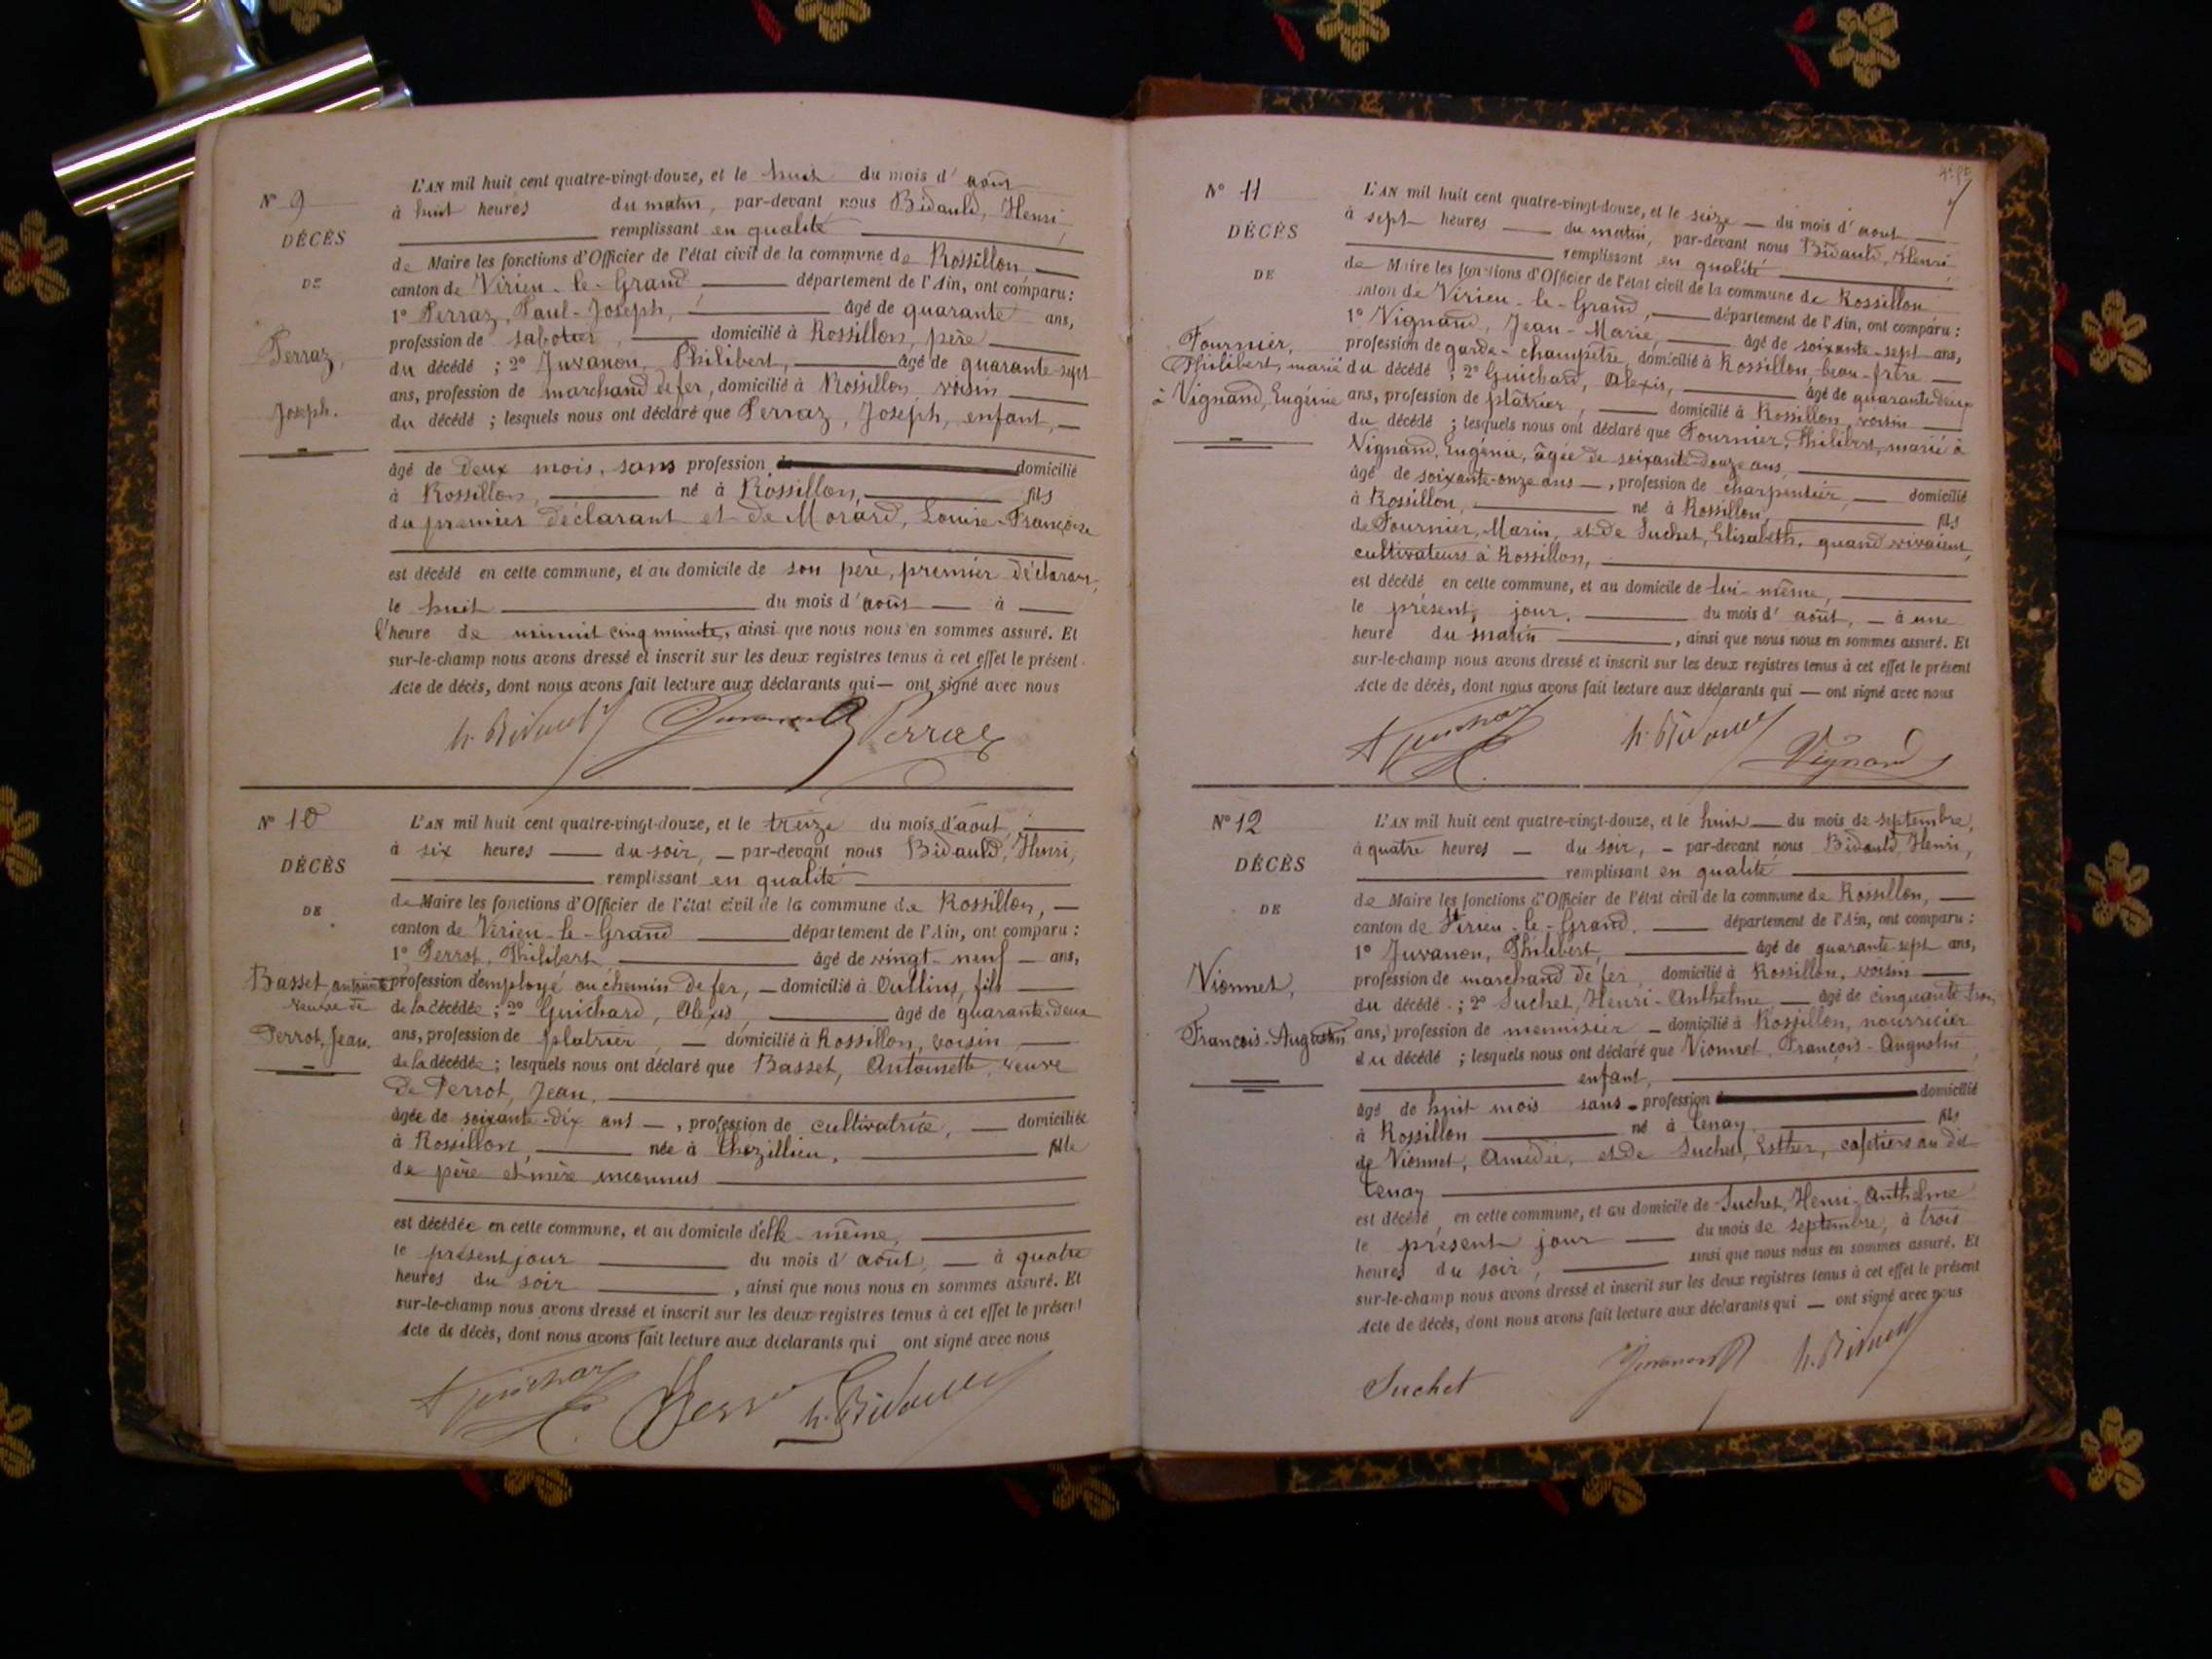 N° 9
DÉCÈS
DE
Perraz,
Joseph.
L'AN mil huit cent quatre-vingt-douze, et le huit du mois d'août
à huit heures du matin, par-devant nous Bidauld, Henri,
remplissant en qualité
de Maire les fonctions d'Officier de l'état civil de la commune de Rossillon
canton de Virieu-le-Grand, département de l'Ain, ont comparu :
1° Perraz, Paul-Joseph, âgé de quarante ans,
profession de sabotier, domicilié à Rossillon, père
du décédé ; 2° Juvanon, Philibert, âgé de quarante-sept
ans, profession de marchand de fer, domicilié à Rossillon, voisin
du décédé ; lesquels nous ont déclaré que Perraz, Joseph, enfant,
âgé de deux mois, sans profession domicilié
à Rossillon, né à Rossillon, fils
du premier déclarant et de Morard, Louise-Françoise
est décédé en cette commune, et au domicile de son père, premier déclarant,
le huit du mois d'août à
l'heure de minuit cinq minutes, ainsi que nous nous en sommes assuré. Et
sur-le-champ nous avons dressé et inscrit sur les deux registres tenus à cet effet le présent
Acte de décès, dont nous avons fait lecture aux déclarants qui ont signé avec nous
h. Bidauld Juvanon Perraz
N° 10
DÉCÈS
DE
Basset, Antoinette
veuve de
Perrot, Jean.
L'AN mil huit cent quatre-vingt-douze, et le treize du mois d'août,
à six heures du soir, par-devant nous Bidauld, Henri,
remplissant en qualité
de Maire les fonctions d'Officier de l'état civil de la commune de Rossillon,
canton de Virieu-le-Grand département de l'Ain, ont comparu :
1° Perrot, Philibert âgé de vingt-neuf ans,
profession d'employé au chemin de fer, domicilié à Oullins, fils
de la décédée ; 2° Guichard, Alexis, âgé de quarante-deux
ans, profession de platrier, domicilié à Rossillon, voisin
de la décédée ; lesquels nous ont déclaré que Basset, Antoinette, veuve
de Perrot, Jean,
âgée de soixante-dix ans, profession de cultivatrice, domiciliée
à Rossillon, née à Thézillieu, fille
de père et mère inconnus
est décédée en cette commune, et au domicile d'elle-même,
le présent jour du mois d'août, à quatre
heures du soir, ainsi que nous nous en sommes assuré. Et
sur-le-champ nous avons dressé et inscrit sur les deux registres tenus à cet effet le présent
Acte de décès, dont nous avons fait lecture aux déclarants qui ont signé avec nous
A Guichard h. Bidauld
7
N° 11
DÉCÈS
DE
Fournier,
Philibert, marié
à Vignand, Eugénie
L'AN mil huit cent quatre-vingt-douze, et le seize du mois d'août
à sept heures du matin, par-devant nous Bidauld, Henri
remplissant en qualité
de Maire les fonctions d'Officier de l'état civil de la commune de Rossillon
canton de Virieu-le-Grand, département de l'Ain, ont comparu :
1° Vignand, Jean-Marie, âgé de soixante-sept ans,
profession de garde-champêtre, domicilié à Rossillon, beau-frère
du décédé ; 2° Guichard, Alexis, âgé de quarante-deux
ans, profession de plâtrier, domicilié à Rossillon, voisin
du décédé ; lesquels nous ont déclaré que Fournier, Philibert, marié à
Vignand, Eugénie, âgée de soixante-douze ans
âgé de soixante-onze ans, profession de charpentier, domicilié
à Rossillon, né à Rossillon, fils
de Fournier, Marin, et de Suchet, Elisabeth, quand vivaient,
cultivateurs à Rossillon,
est décédé en cette commune, et au domicile de lui-même,
le présent jour, du mois d'août, à une
heure du matin, ainsi que nous nous en sommes assuré. Et
sur-le-champ nous avons dressé et inscrit sur les deux registres tenus à cet effet le présent
Acte de décès, dont nous avons fait lecture aux déclarants qui ont signé avec nous
A Guichard h. Bidauld Vignand
N° 12
DÉCÈS
DE
Vionnet,
François-Augustin
L'AN mil huit cent quatre-vingt-douze, et le huit du mois de septembre,
à quatre heures du soir, par-devant nous Bidauld, Henri,
remplissant en qualité
de Maire les fonctions d'Officier de l'état civil de la commune de Rossillon,
canton de Virieu-le-Grand, département de l'Ain, ont comparu :
1° Juvanon, Philibert, âgé de quarante-sept ans,
profession de marchand de fer, domicilié à Rossillon, voisin
du décédé ; 2° Suchet, Henri-Anthelme, âgé de cinquante-trois
ans, profession de menuisier domicilié à Rossillon, nourricier
du décédé ; lesquels nous ont déclaré que Vionnet, François-Augustin,
enfant,
âgé de huit mois sans profession domicilié
à Rossillon né à Tenay, fils
de Vionnet, Amédée, et de Suchet, Esther, cafetiers au dit
Tenay
est décédé en cette commune, et au domicile de Suchet, Henri-Anthelme
le présent jour du mois de septembre, à trois
heures du soir, ainsi que nous nous en sommes assuré. Et
sur-le-champ nous avons dressé et inscrit sur les deux registres tenus à cet effet le présent
Acte de décès, dont nous avons fait lecture aux déclarants qui ont signé avec nous
Suchet Juvanon h. Bidauld